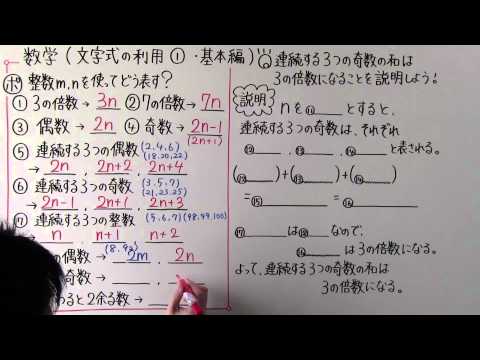 数学(文字式の利用①・基本編)
ポ 整数m,nを使ってどう表す?
① 3の倍数→ 3n ② 7の倍数→ 7n
③ 偶数→ 2n ④ 奇数→ 2n-1
(2n+1)
⑤ 連続する3つの偶数 (2,4,6)
(18,20,22)
→ 2n , 2n+2 , 2n+4
⑥ 連続する3つの奇数 (3,5,7)
(21,23,25)
→ 2n-1 , 2n+1 , 2n+3
⑰ 連続する3つの整数 (5,6,7)(98,99,100)
→ n , n+1 , n+2
の偶数→ 2m , 2n
奇数→ ,
わると2余る数→
Q 連続する3つの奇数の和は
3の倍数になることを説明しよう!
説明 nを⑪ とすると、
連続する3つの奇数は、それぞれ
, , と表される。
( )+( )+( )
=⑮ =⑯
⑰ は なので、
は3の倍数になる。
よって、連続する3つの奇数の和は
3の倍数になる。